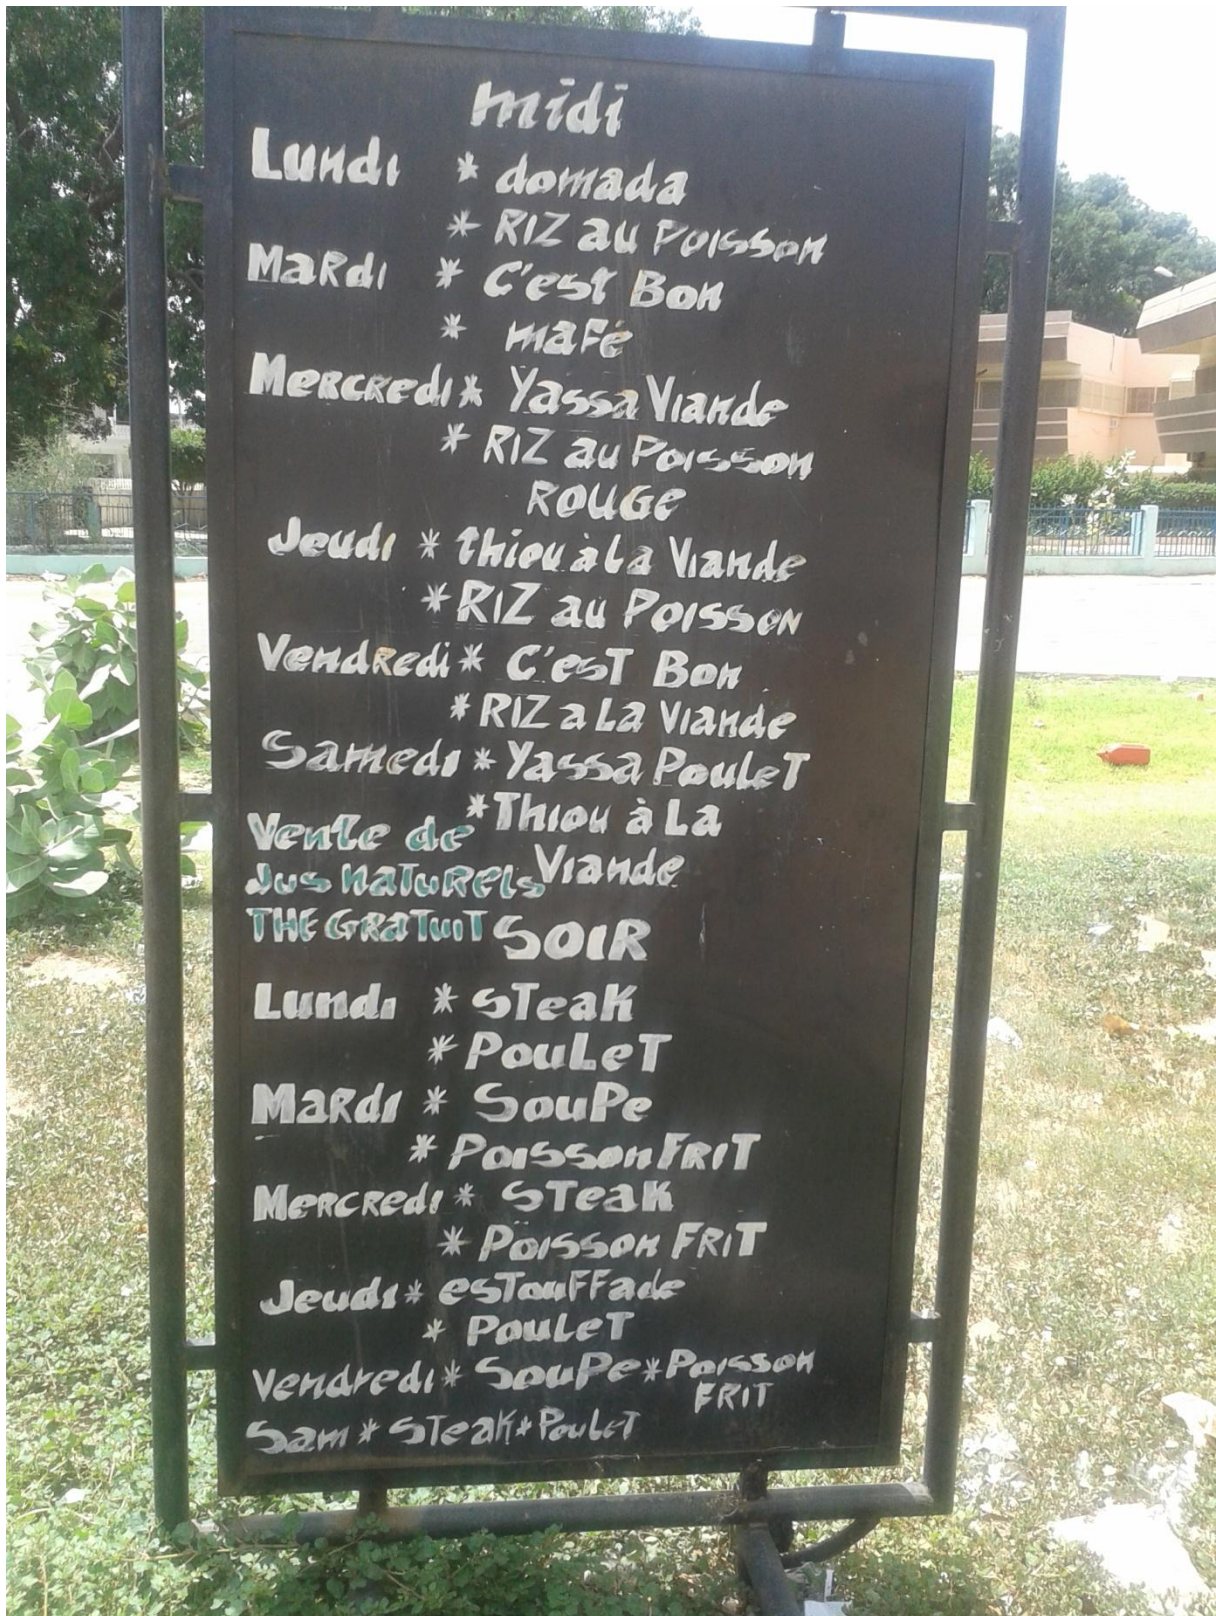 midi
Lundi * domada
* RIZ au Poisson
MaRdi * C'est Bon
* maFé
MeRCRedi * Yassa Viande
* RIZ au Poisson
ROUGe
Jeudi * thiou à La Viande
* RIZ au Poisson
VendRedi * C'esT Bon
* RIZ a La Viande
Samedi * Yassa PouLeT
* Thiou à La
Viande
Vente de
Jus NaTuRels
THE GRaTuiT
SOIR
Lundi * STeaK
* PouLeT
MaRdi * SouPe
* Poisson FRIT
MeRCRedi * STeaK
* Poisson FRIT
Jeudi * esTouFFade
* PouLeT
Vendredi * SouPe * Poisson
FRIT
Sam * STeaK * PouLeT